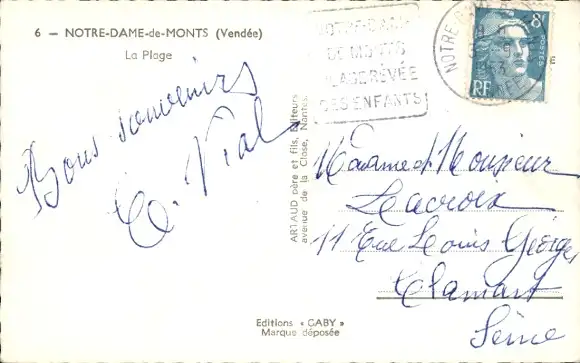 6 — NOTRE-DAME-de-MONTS (Vendée)
La Plage
Bons souvenirs
NOTRE-DAME
DE MONTS
PLAGE RÊVÉE
DES ENFANTS
NOTRE
8F
POSTES
RF
ARTAUD père et fils, Editeurs
avenue de la Close, Nantes
Madame et Monsieur
Lacroix
11 Rue Louis Georges
Clamart
Seine
Editions « GABY »
Marque déposée